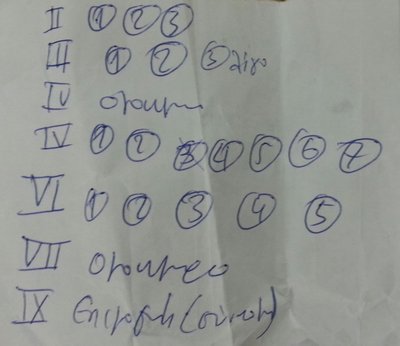 II ① ② ③
III ① ② ③ λίγο
IV
IV ① ② ③ ④ ⑤ ⑥ ⑦
VI ① ② ③ ④ ⑤
VII
IX